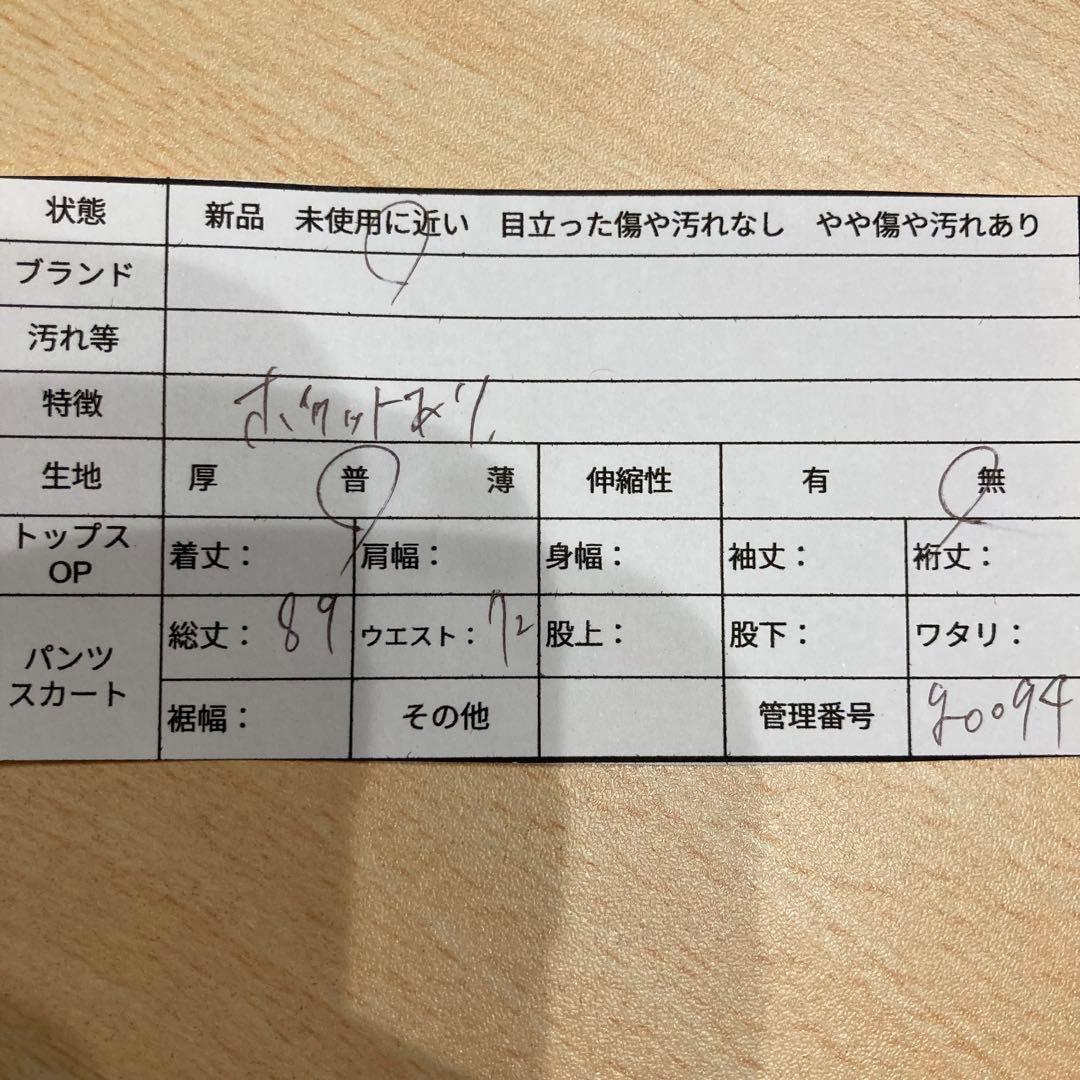 状態 新品 未使用に近い 目立った傷や汚れなし やや傷や汚れあり
ブランド
汚れ等
特徴 ポケットあり
生地 厚 普 薄 伸縮性 有 無
トップス OP 着丈： 肩幅： 身幅： 袖丈： 裄丈：
パンツ スカート 総丈：89 ウエスト：72 股上： 股下： ワタリ：
裾幅： その他 管理番号 g0094